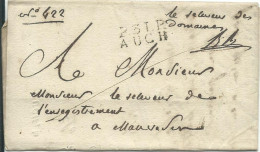 n.° 422
le receveur des
domaines
P31P
AUCH
A Monsieur
Monsieur le receveur de
l'enregistrement
a Mauvesin